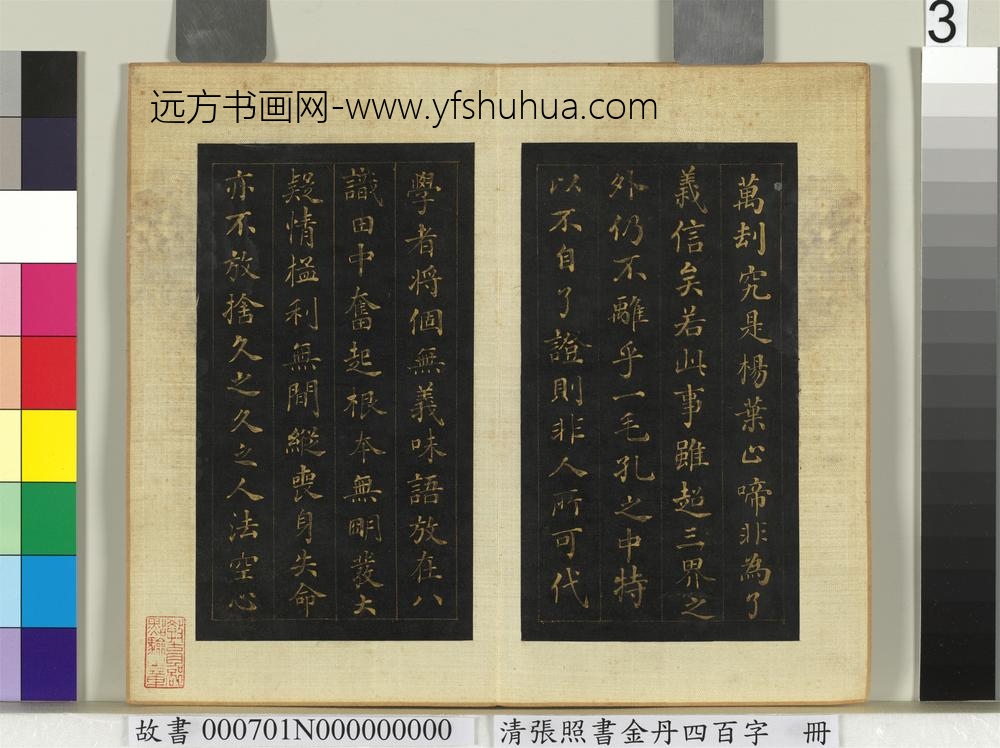 3
远方书画网-www.yfshuhua.com
萬刦究是楊葉止啼非為了
義信矣若此事雖起三界之
外仍不離乎一毛孔之中特
以不自了證則非人所可代
學者將個無義味語放在八
識田中奮起根本無明發大
疑情猛利無間縱喪身失命
亦不放捨久之久之人法空心
故書 000701N000000000 清張照書金丹四百字 冊